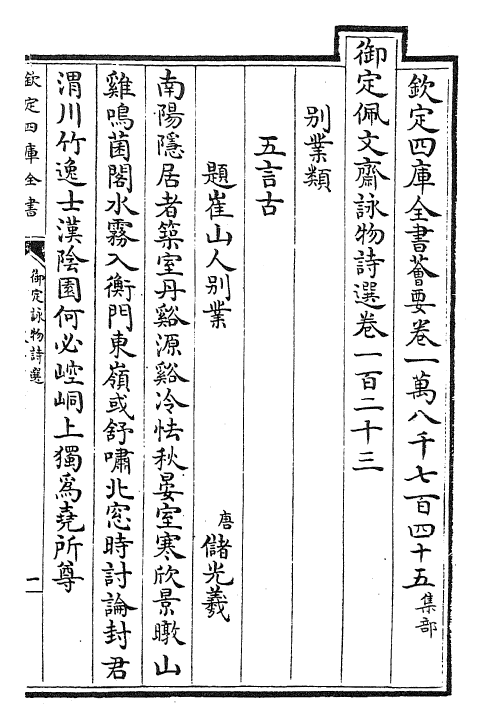 欽定四庫全書薈要卷一萬八千七百四十五集部
御定佩文齋詠物詩選卷一百二十三
別業類
五言古
題崔山人別業
唐儲光羲
南陽隱居者築室丹谿源谿冷怯秋晏室寒欣景暾山
雞鳴菌閣水霧入衡門東嶺或舒嘯北窓時討論封君
渭川竹逸士漢陰園何必崆峒上獨為堯所尊
欽定四庫全書
御定詠物詩選
一